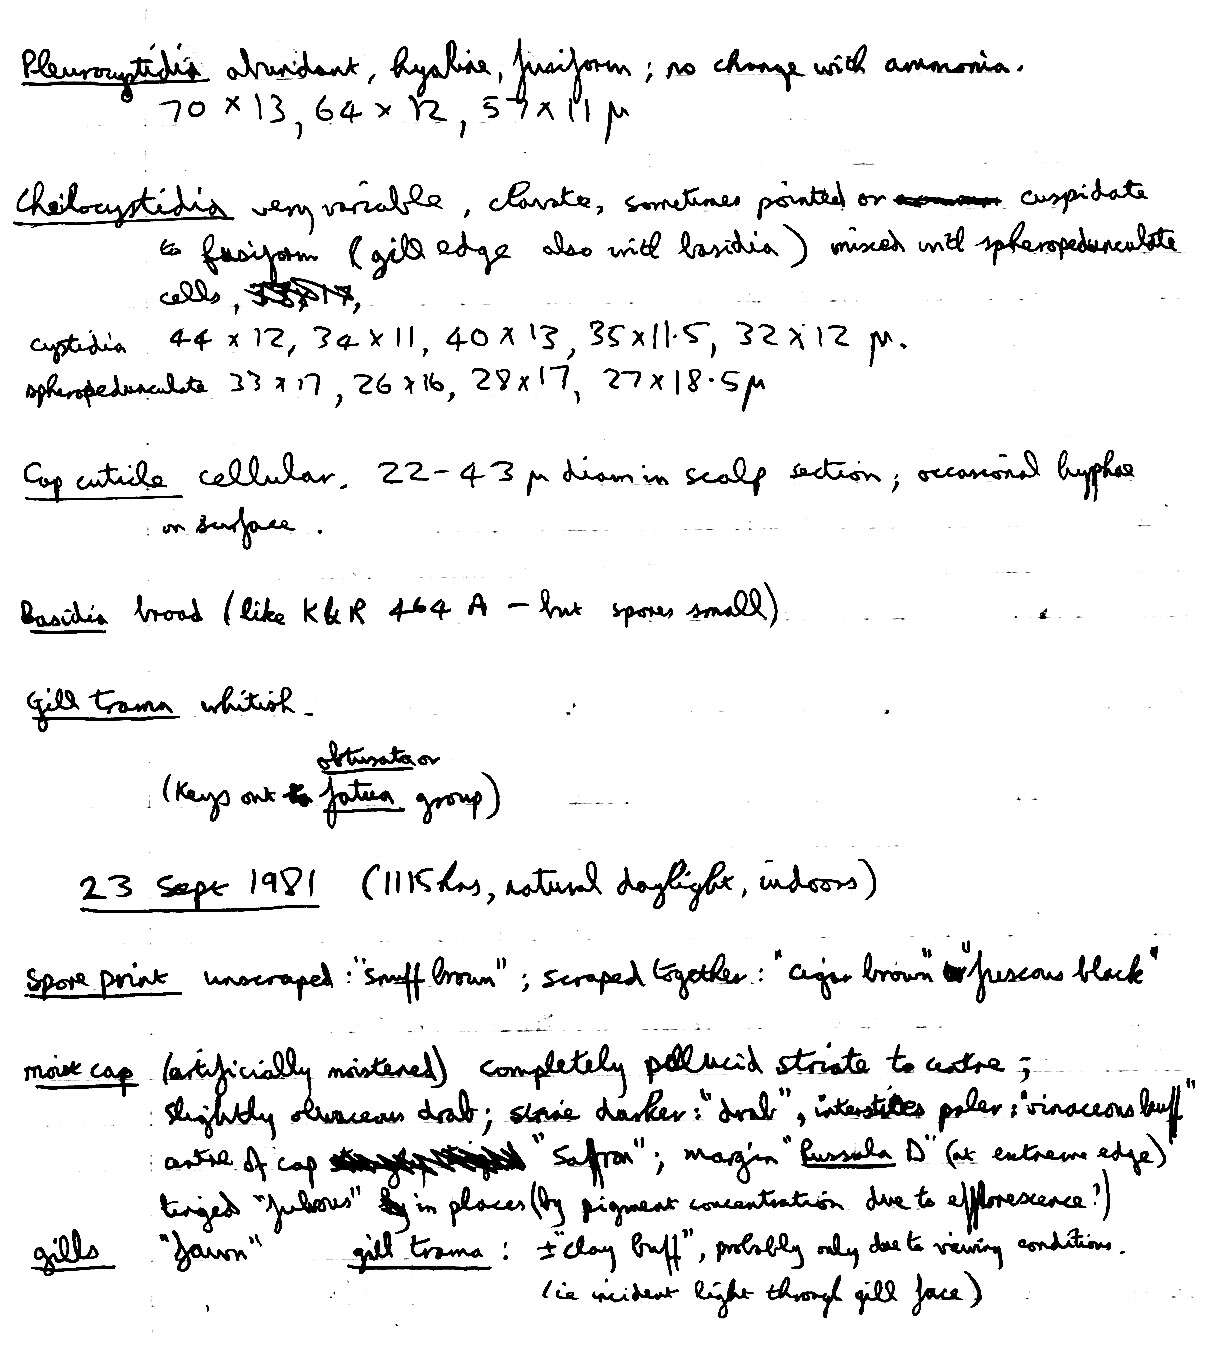 Pleurocystidia abundant, hyaline, fusiform; no change with ammonia.
70 x 13, 64 x 12, 57 x 11 μ
Cheilocystidia very variable, clavate, sometimes pointed or cuspidate
to fusiform (gill edge also with basidia) mixed with spheropedunculate
cells,
cystidia 44 x 12, 34 x 11, 40 x 13, 35 x 11.5, 32 x 12 μ.
spheropedunculate 33 x 17, 26 x 16, 28 x 17, 27 x 18.5 μ
Cap cuticle cellular. 22-43 μ diam in scalp section; occasional hyphae
on surface.
Basidia broad (like K&R 464 A - but spores small)
Gill trama whitish.
obtusata or
(Keys out to fatua group)
23 Sept 1981 (1115 hrs, natural daylight, indoors)
Spore print unscraped: "Snuff brown"; scraped together: "cigar brown" "fuscous black"
moist cap (artificially moistened) completely pellucid striate to centre;
slightly olivaceous drab; striae darker: "drab", interstices paler: "vinaceous buff"
centre of cap "Saffron"; margin "Russula D" (at extreme edge)
tinged "fulvous" in places (by pigment concentration due to efflorescence?)
gills "fawn" gill trama: ± "clay buff", probably only due to viewing conditions.
(ie incident light through gill face)